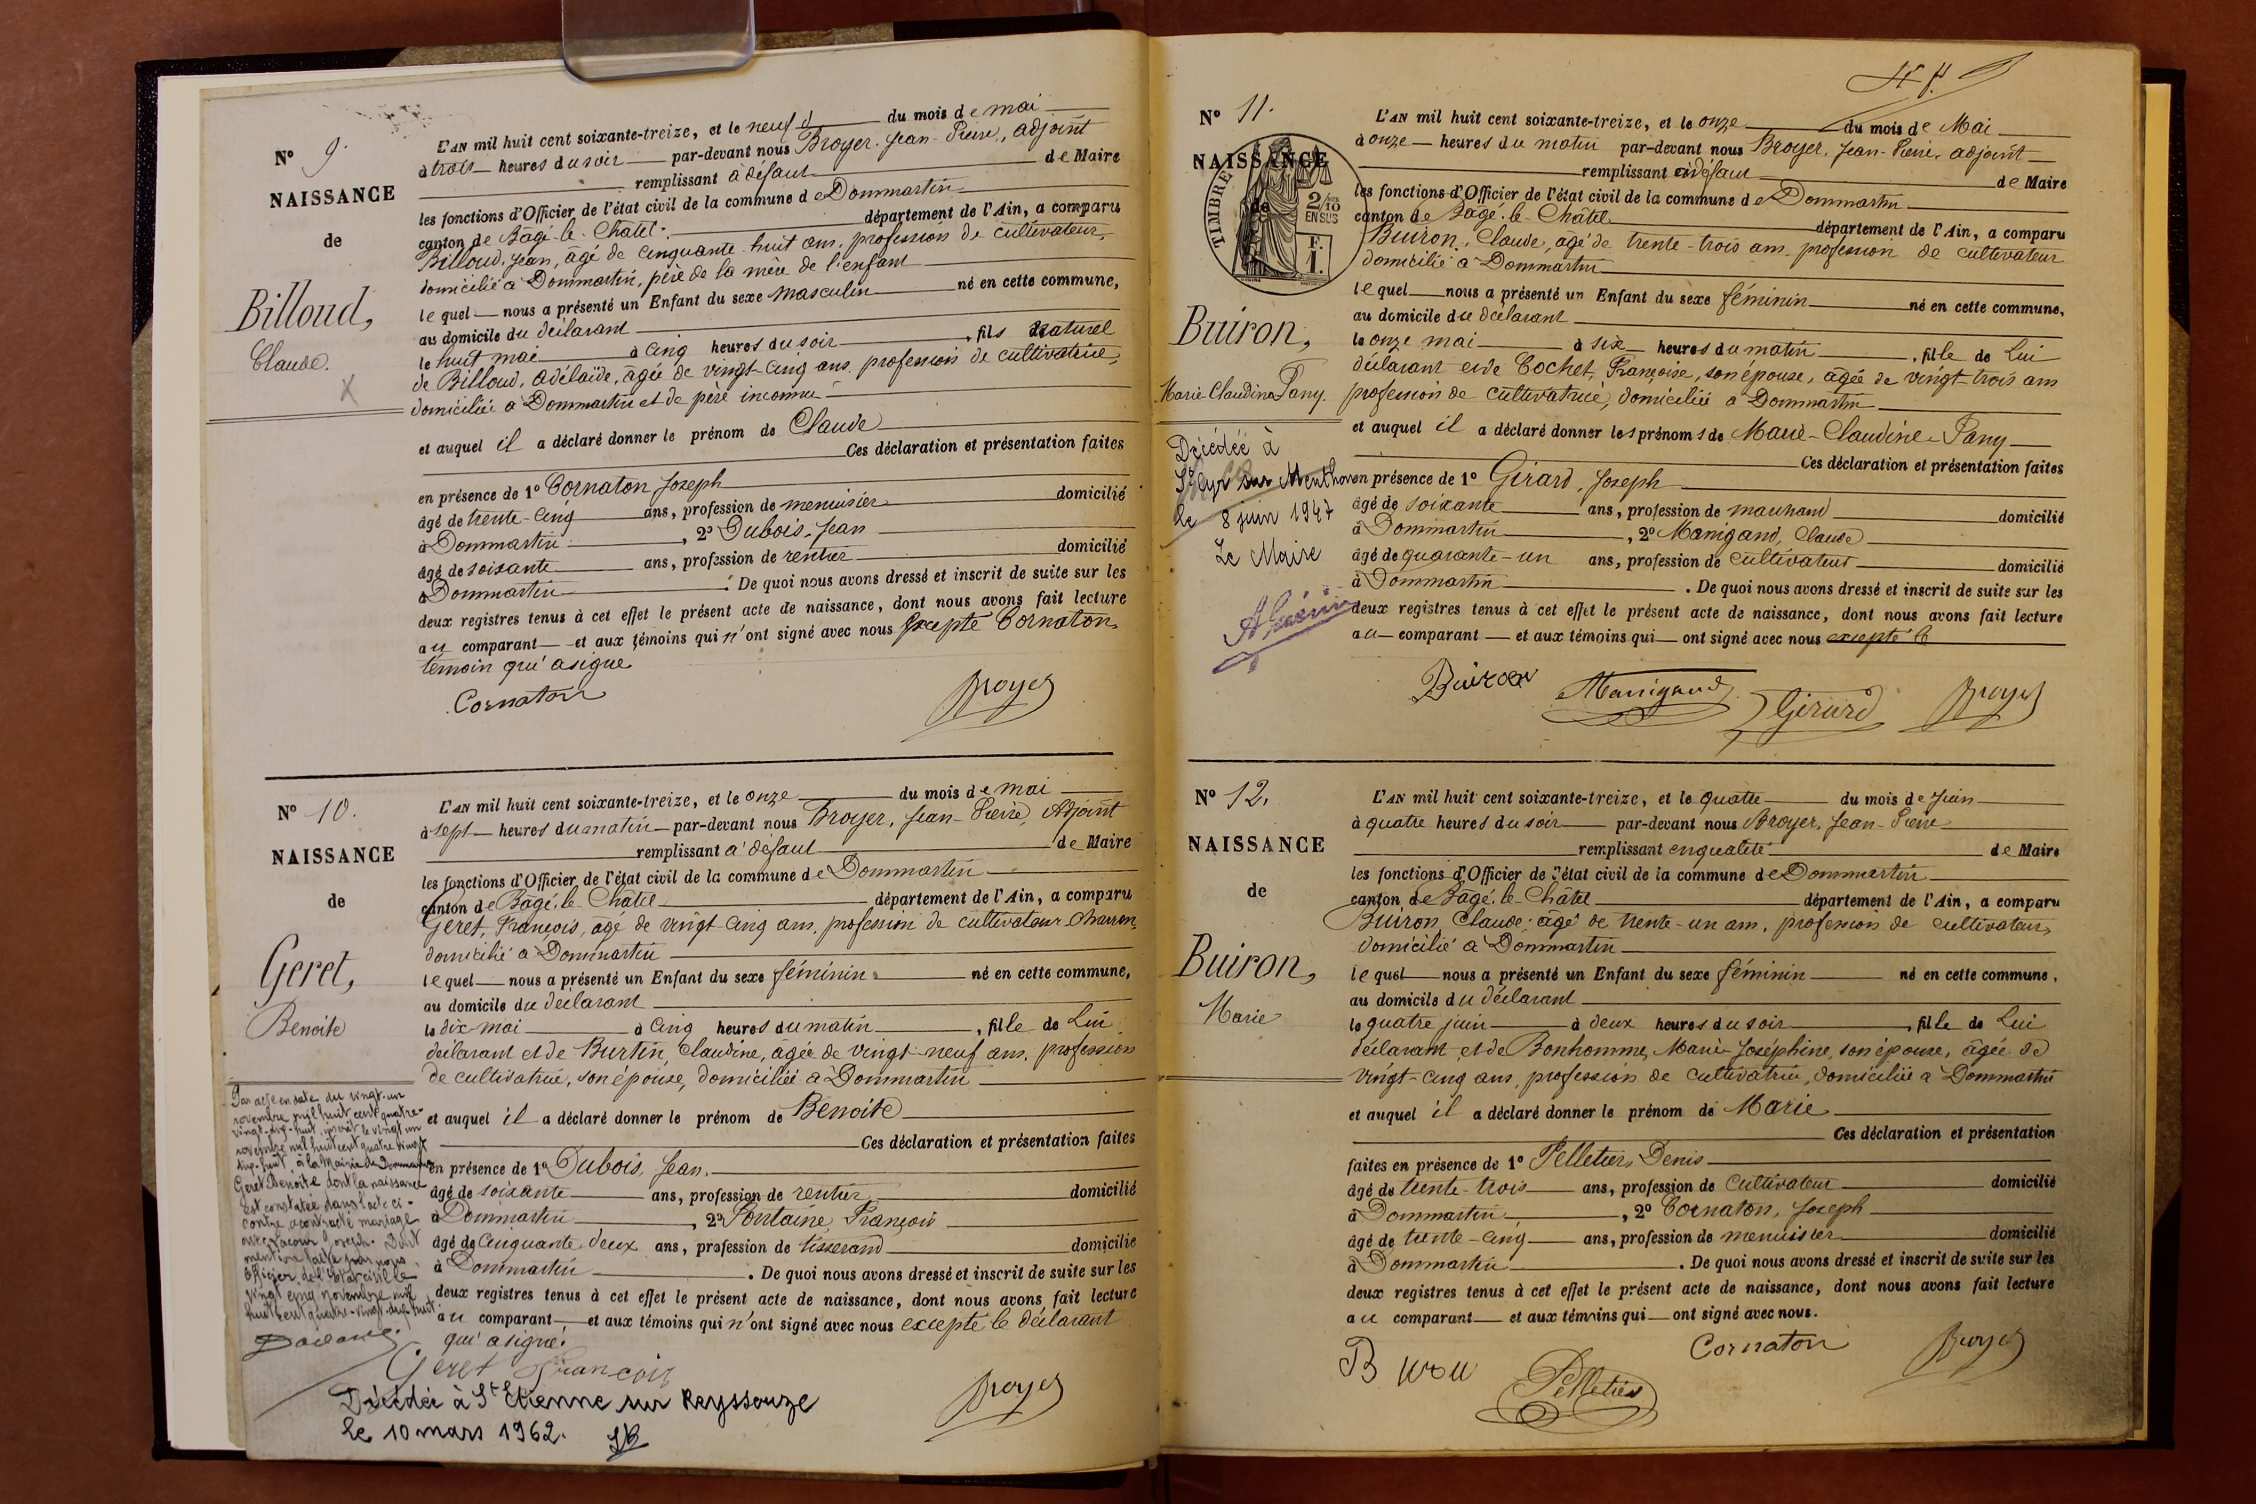 N° 9.
NAISSANCE
de
Billoud,
Claude.
L'AN mil huit cent soixante-treize, et le neuf du mois de mai
à trois heures du soir par-devant nous Broyer, Jean-Pierre, adjoint
remplissant à défaut de Maire
les fonctions d'Officier de l'état civil de la commune de Dommartin
canton de Bâgé-le-Châtel département de l'Ain, a comparu
Billoud, Jean, âgé de cinquante-huit ans, profession de cultivateur,
domicilié à Dommartin, père de la mère de l'enfant
lequel nous a présenté un Enfant du sexe masculin né en cette commune,
au domicile du déclarant
le huit mai à cinq heures du soir, fils naturel
de Billoud, Adélaïde, âgée de vingt-cinq ans, profession de cultivatrice,
domiciliée à Dommartin et de père inconnu
et auquel il a déclaré donner le prénom de Claude
Ces déclaration et présentation faites
en présence de 1° Cornaton Joseph
âgé de trente-cinq ans, profession de menuisier domicilié
à Dommartin, 2° Dubois, Jean
âgé de soixante ans, profession de rentier domicilié
à Dommartin. De quoi nous avons dressé et inscrit de suite sur les
deux registres tenus à cet effet le présent acte de naissance, dont nous avons fait lecture
au comparant et aux témoins qui n'ont signé avec nous excepté Cornaton,
témoin qui a signé
Cornaton Broyer
N° 10.
NAISSANCE
de
Geret,
Benoite
L'AN mil huit cent soixante-treize, et le onze du mois de mai
à sept heures du matin par-devant nous Broyer, Jean-Pierre, Adjoint
remplissant à défaut de Maire
les fonctions d'Officier de l'état civil de la commune de Dommartin
canton de Bâgé-le-Châtel département de l'Ain, a comparu
Geret, François, âgé de vingt-cinq ans, profession de cultivateur charron,
domicilié à Dommartin
lequel nous a présenté un Enfant du sexe féminin né en cette commune,
au domicile du déclarant
le dix mai à cinq heures du matin, fille de Lui
déclarant et de Burtin, Claudine, âgée de vingt-neuf ans, profession
de cultivatrice, son épouse, domiciliée à Dommartin
et auquel il a déclaré donner le prénom de Benoite
Ces déclaration et présentation faites
en présence de 1° Dubois, Jean,
âgé de soixante ans, profession de rentier domicilié
à Dommartin, 2° Fontaine, François
âgé de cinquante-deux ans, profession de tisserand domicilié
à Dommartin. De quoi nous avons dressé et inscrit de suite sur les
deux registres tenus à cet effet le présent acte de naissance, dont nous avons fait lecture
au comparant et aux témoins qui n'ont signé avec nous excepté le déclarant
qui a signé.
Geret François Broyer
Par acte en date du vingt-un
novembre mil huit cent quatre-
vingt-dix-huit, le vingt un
novembre mil huit cent quatre vingt
dix-huit, à la Mairie de Dommartin
Geret Benoite dont la naissance
est constatée dans l'acte ci-
contre a contracté mariage
avec Joseph. Dont
mention faite par nous
Officier de l'état civil le
vingt cinq novembre mil
huit cent quatre-vingt-dix-huit
Décédée à St Etienne sur Reyssouze
le 10 mars 1962.
N° 11.
NAISSANCE
de
TIMBRE
2/10
EN SUS
F.
1.
Buiron,
Marie Claudine Fany.
Décédée à
St Cyr sur Menthon
le 8 juin 1947
Le Maire
L'AN mil huit cent soixante-treize, et le onze du mois de Mai
à onze heures du matin par-devant nous Broyer, Jean-Pierre, adjoint
remplissant à défaut de Maire
les fonctions d'Officier de l'état civil de la commune de Dommartin
canton de Bâgé-le-Châtel département de l'Ain, a comparu
Buiron, Claude, âgé de trente-trois ans, profession de cultivateur
domicilié à Dommartin
lequel nous a présenté un Enfant du sexe féminin né en cette commune,
au domicile du déclarant
le onze mai à six heures du matin, fille de Lui
déclarant et de Cochet, Françoise, son épouse, âgée de vingt-trois ans
profession de cultivatrice, domiciliée à Dommartin
et auquel il a déclaré donner les prénoms de Marie-Claudine-Fany
Ces déclaration et présentation faites
en présence de 1° Girard, Joseph
âgé de soixante ans, profession de marchand domicilié
à Dommartin, 2° Manigand, Claude
âgé de quarante-un ans, profession de cultivateur domicilié
à Dommartin. De quoi nous avons dressé et inscrit de suite sur les
deux registres tenus à cet effet le présent acte de naissance, dont nous avons fait lecture
au comparant et aux témoins qui ont signé avec nous excepté le
Buiron Manigand Girard Broyer
N° 12.
NAISSANCE
de
Buiron,
Marie
L'AN mil huit cent soixante-treize, et le quatre du mois de Juin
à quatre heures du soir par-devant nous Broyer, Jean-Pierre
remplissant en qualité de Maire
les fonctions d'Officier de l'état civil de la commune de Dommartin
canton de Bâgé-le-Châtel département de l'Ain, a comparu
Buiron, Claude, âgé de trente-un ans, profession de cultivateur,
domicilié à Dommartin
lequel nous a présenté un Enfant du sexe féminin né en cette commune,
au domicile du déclarant
le quatre juin à deux heures du soir, fille de Lui
déclarant et de Bonhomme, Marie-Joséphine, son épouse, âgée de
vingt-cinq ans, profession de cultivatrice, domiciliée à Dommartin
et auquel il a déclaré donner le prénom de Marie
Ces déclaration et présentation
faites en présence de 1° Pelletier, Denis
âgé de trente-trois ans, profession de cultivateur domicilié
à Dommartin, 2° Cornaton, Joseph
âgé de trente-cinq ans, profession de menuisier domicilié
à Dommartin. De quoi nous avons dressé et inscrit de suite sur les
deux registres tenus à cet effet le présent acte de naissance, dont nous avons fait lecture
au comparant et aux témoins qui ont signé avec nous.
Pelletier Cornaton Broyer